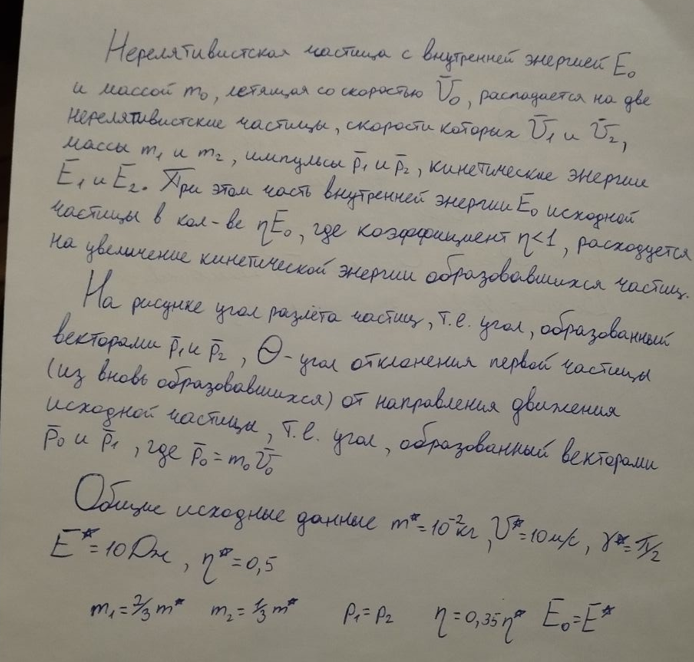 Нерелятивистская частица с внутренней энергией E₀
и массой m₀, летящая со скоростью V̄₀, распадается на две
нерелятивистские частицы, скорости которых V̄₁ и V̄₂,
массы m₁ и m₂, импульсы p̄₁ и p̄₂, кинетические энергии
E₁ и E₂. При этом часть внутренней энергии E₀ исходной
частицы в кол-ве ηE₀, где коэффициент η<1, расходуется
на увеличение кинетической энергии образовавшихся частиц.
На рисунке угол разлёта частиц, т.е. угол, образованный
векторами p̄₁ и p̄₂, Θ - угол отклонения первой частицы
(из вновь образовавшихся) от направления движения
исходной частицы, т.е. угол, образованный векторами
p̄₀ и p̄₁, где p̄₀ = m₀V̄₀
Общие исходные данные m* = 10⁻² кг, V* = 10 м/с, γ* = π/2
E* = 10 Дж, η* = 0,5
m₁ = 2/3 m* m₂ = 1/3 m* p₁ = p₂ η = 0,35η* E₀ = E*